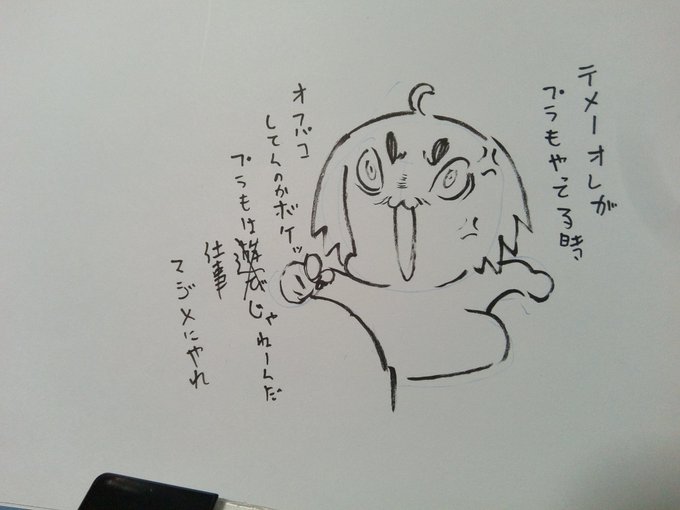 テメーオレが
プラもやってる時、
オフパコ
してんのかボケッ
プラもは遊びじゃねーんだ
仕事
マジメにやれ